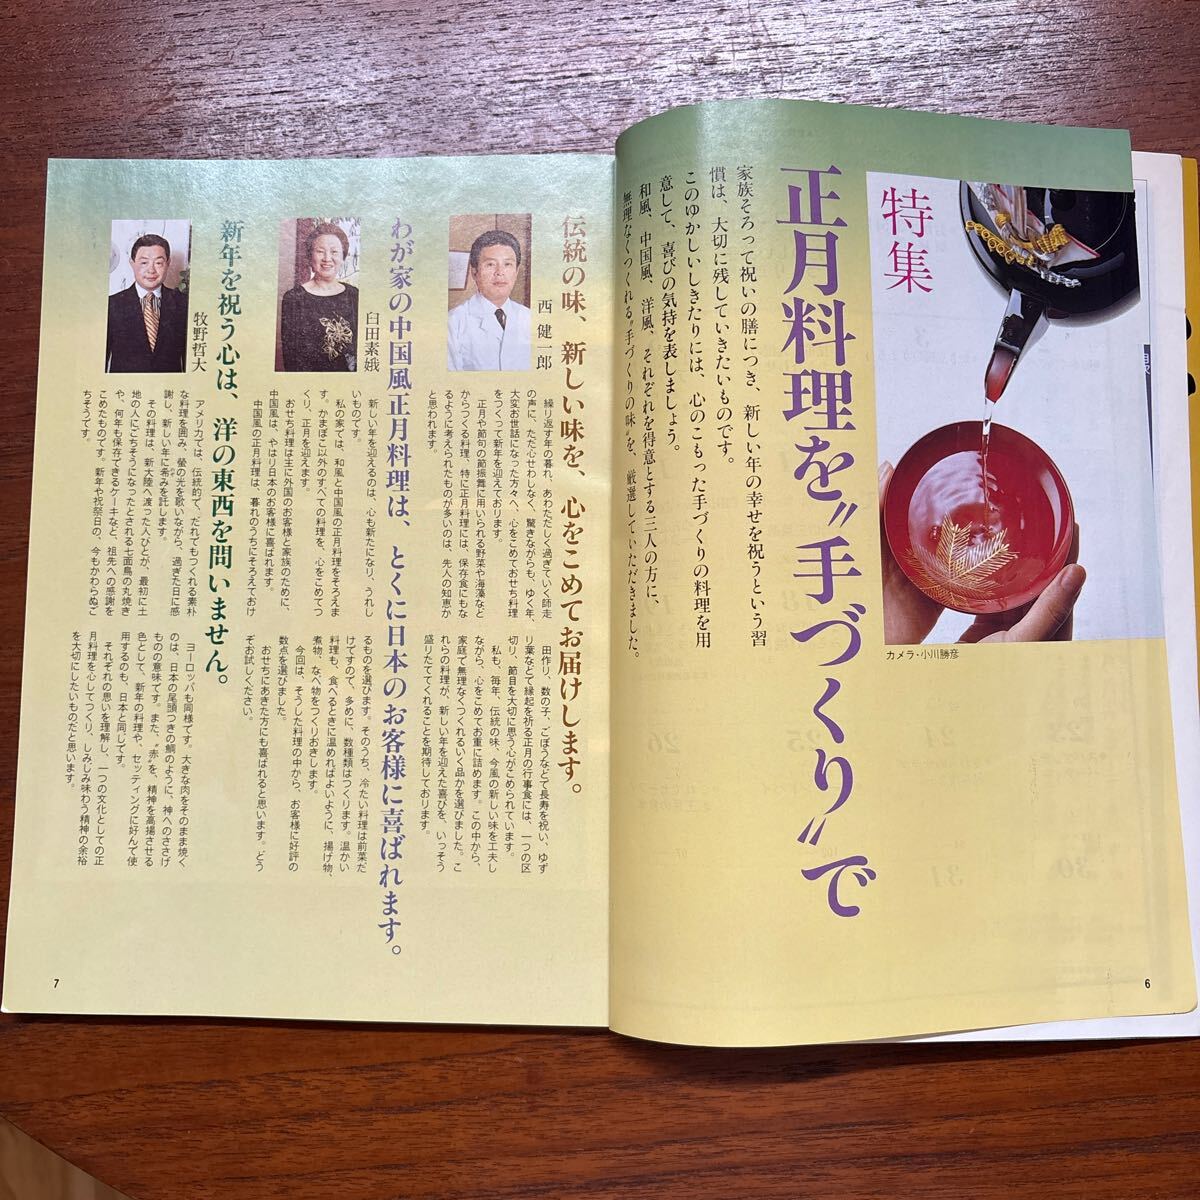 特集
正月料理を〝手づくり〟で
家族そろって祝いの膳につき、新しい年の幸せを祝うという習
慣は、大切に残していきたいものです。
このゆかしいしきたりには、心のこもった手づくりの料理を用
意して、喜びの気持を表しましょう。
和風、中国風、洋風、それぞれを得意とする三人の方に、
無理なくつくれる〝手づくりの味〟を、厳選していただきました。
カメラ・小川勝彦
6
伝統の味、新しい味を、心をこめてお届けします。
西 健一郎
繰り返す年の暮れ、あわただしく過ぎていく師走
の声に、ただ心せわしなく、驚きながらも、ゆく年、
大変お世話になった方々へ、心をこめておせち料理
をつくって新年を迎えております。
正月や節句の節振舞に用いられる野菜や海藻など
からつくる料理、特に正月料理には、保存食にもな
るように考えられたものが多いのは、先人の知恵か
と思われます。
田作り、数の子、ごぼうなどで長寿を祝い、ゆず
り葉などで縁起を祈る正月の行事食には、一つの区
切り、節目を大切に思う心がこめられています。
私も、毎年、伝統の味、今風の新しい味を工夫し
ながら、心をこめてお重に詰めます。この中から、
家庭で無理なくつくれるいく品かを選びました。こ
れらの料理が、新しい年を迎えた喜びを、いっそう
盛りたててくれることを期待しております。
わが家の中国風正月料理は、とくに日本のお客様に喜ばれます。
臼田素娥
新しい年を迎えるのは、心も新たになり、うれし
いものです。
私の家では、和風と中国風の正月料理をそろえま
す。かまぼこ以外のすべての料理を、心をこめてつ
くり、正月を迎えます。
おせち料理は主に外国のお客様と家族のために、
中国風は、やはり日本のお客様に喜ばれます。
中国風の正月料理は、暮れのうちにそろえておけ
るものを選びます。そのうち、冷たい料理は前菜だ
けですので、多めに、数種類はつくります。温かい
料理も、食べるときに温めればよいように、揚げ物、
煮物、なべ物をつくりおきします。
今回は、そうした料理の中から、お客様に好評の
数点を選びました。
おせちにあきた方にも喜ばれると思います。どう
ぞお試しください。
新年を祝う心は、洋の東西を問いません。
牧野哲大
アメリカでは、伝統的で、だれでもつくれる素朴
な料理を囲み、蛍の光を歌いながら、過ぎた日に感
謝し、新しい年に希みを託します。
その料理は、新大陸へ渡った人びとが、最初に土
地の人にごちそうになったとされる七面鳥の丸焼き
や、何年も保存できるケーキなど、祖先への感謝を
こめたものです。新年や祝祭日の、今もかわらぬご
ちそうです。
ヨーロッパも同様です。大きな肉をそのまま焼く
のは、日本の尾頭つきの鯛のように、神へのささげ
ものの意味です。また、〝赤〟を、精神を高揚させる
色として、新年の料理や、セッティングに好んで使
用するのも、日本と同じです。
それぞれの思いを理解し、一つの文化としての正
月料理を心してつくり、しみじみ味わう精神の余裕
を大切にしたいものだと思います。
7